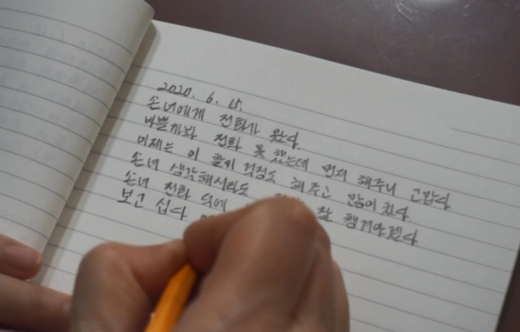 2020. 6. 15.
손녀에게 전화가 왔다.
바쁠까봐 전화 못 했는데 먼저 해주니 고맙다
이제는 이 할미 걱정도 해주고 많이 컸다
손녀 생각해서라도 잘 챙겨야겠다
손녀 전화 덕에
보고 십다